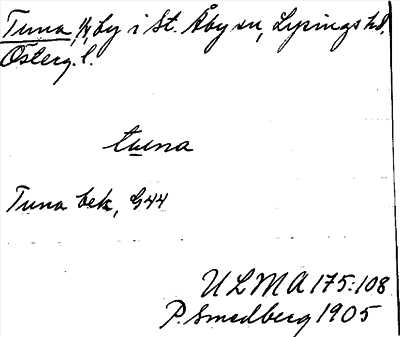 Tuna, by i St. Åby sn, Lysings hd,
Österg. l.
tuna
Tuna bek, G44
ULMA 175:108
P. Smedberg 1905